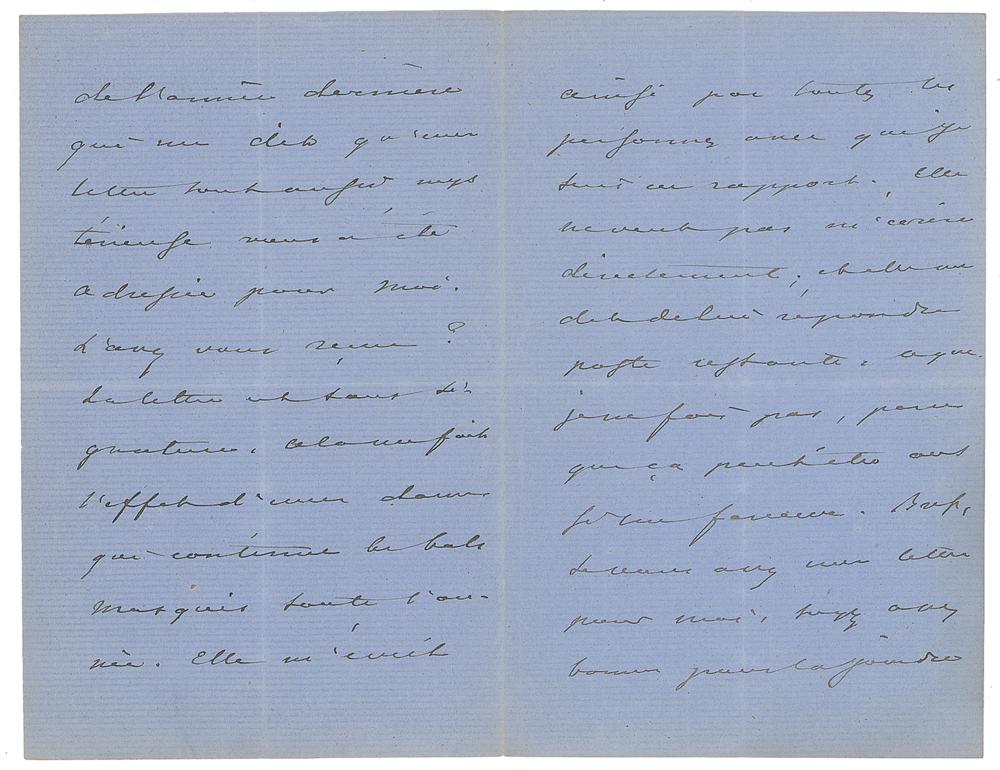 de l'année dernière
qui me dit qu'une
lettre tout aussi mys
térieuse vous a été
adressée pour moi.
L'avez vous reçue ?
La lettre est sans si-
gnature, cela me fait
l'effet d'une dame
qui continue les bals
masqués toute l'an-
née. Elle m'écrit
ainsi par toutes les
personnes avec qui je
suis en rapport. Elle
ne veut pas m'écrire
directement, et elle me
dit de lui répondre
poste restante, ce que
je ne fais pas, parce
que ça peut être aus
si une farceuse. Bref,
si vous avez une lettre
pour moi, soyez assez
bonne pour la joindre